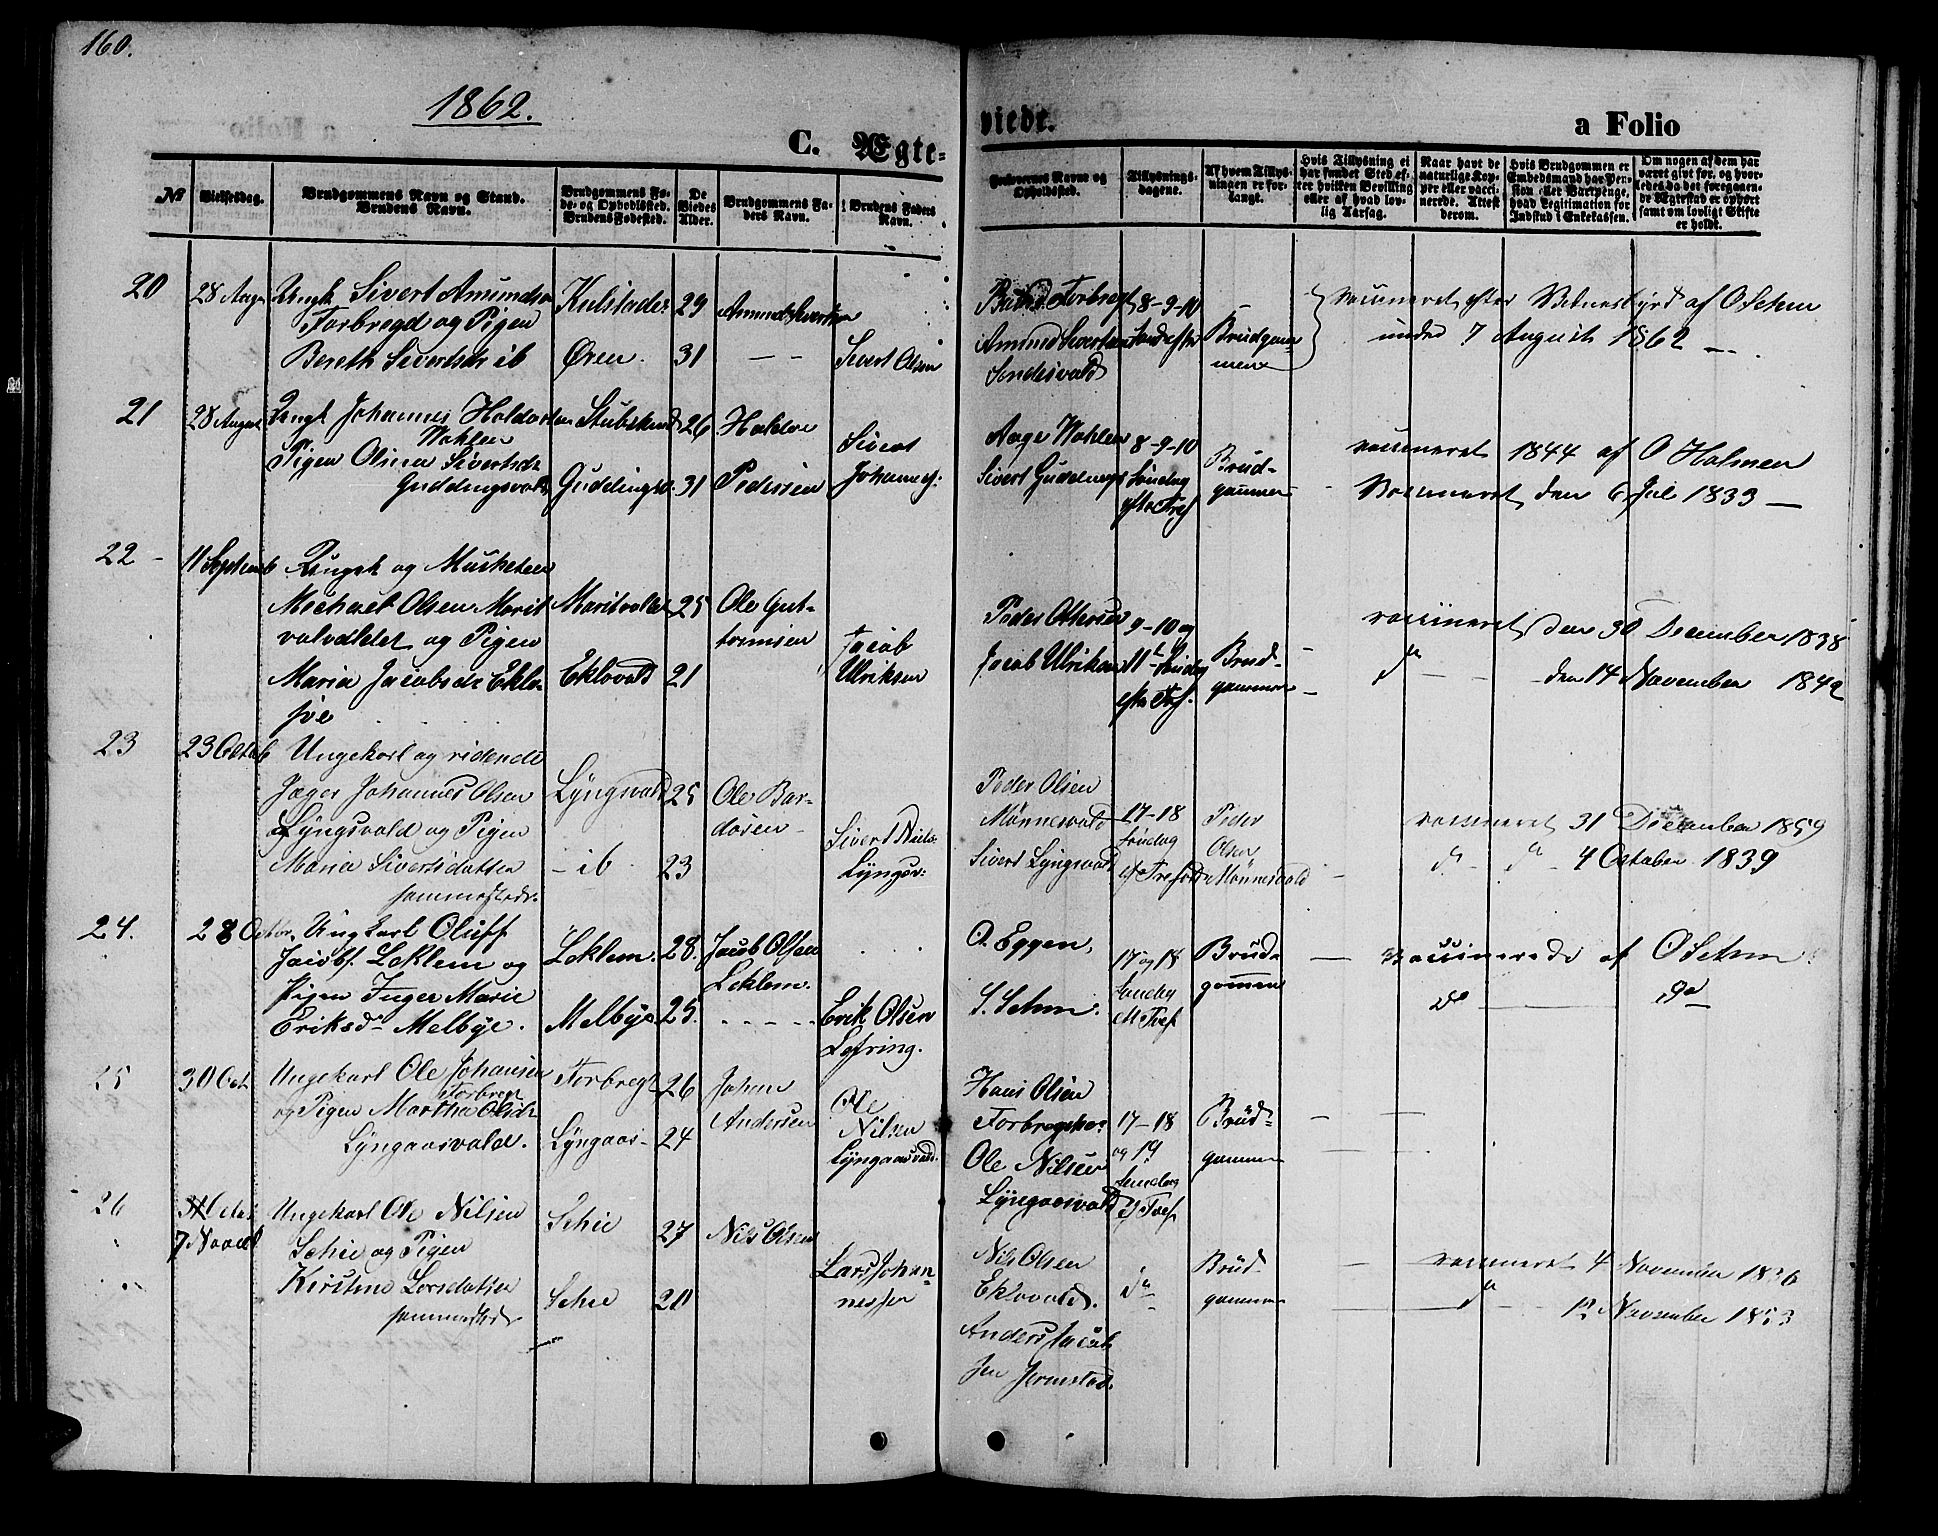 160.
1862.
C. Ægte-
viede.
a Folio
№
Vielsesdag.
Brudgommens Navn og Stand.
Brudens Navn.
Brudgommens Fø-
de- og Opholdssted.
Brudens Fødested.
De
Viedes
Alder.
Brudgommens Fa-
ders Navn.
Brudens Faders
Navn.
Forlovernes Navne og
Opholdssted.
Tillysnings-
dagene.
Af hvem Tillys-
ningen er for-
langt.
Hvis Tillysning ei
har fundet Sted ef-
ter hvilken Bevilling
eller af hvad lov-
lig Aarsag.
Naar havt de
naturlige Kop-
per eller vacci-
nerede. Attest
derom.
Hvis Brudgommen er
Embedsmand har Pen-
sion eller Vartpenge,
hvad Legitimation for
Indskud i Enkekassen.
Om nogen af dem har
været givt før, og hvor-
ledes da det foregaaen-
de Ægteskab er ophørt
samt om lovligt Skifte
er holdt.
20
28 Aug
Ungk Sivert Amundsen
Torbregd og Pigen
Bereth Sivertsdr ib
Øren.
29
31
Sivert Olsen
Torbregt
Amund Sivertsen
8-9-10
Brudgom-
men
vaccineret efter Vidnesbyrd af O Sehm
under 7 August 1862
21
28 August
Ungk Johannes Haldorsen
Wohlen
Pigen Olina Sivertsdr
Guddingsvald
Guddingsv.
26
31
Haldor
Pedersen
Sivert
Johannes:
Aage Wohlen
Sivert Guddings
8-9-10
Søndag
efter Tref
Brud-
gommen
vaccineret 1844 af O Holmen
Vaccineret den 6 Jul 1833
22
11 Septemb
Ungk og Musketeer
Michael Olsen Marit
valvaldet og Pigen
Maria Jacobsdr Eklo-
Maritvaldet
Eklovald
25
21
Ole Gut-
tormsen
Jacob
Ulriksen
Peder Ottersen
Jacob Ulriksen
9-10 og
11te Søndag
efter Tref.
Brud-
gommen
vaccineret den 30 December 1838
do den 14 November 1842
23
23 Octob
Ungekarl og ridende
Jæger Johannes Olsen
Lyngsvald og Pigen
Maria Sivertsdatter
sammestedr.
Lyngsvald
- ib
25
23
Ole Bar-
dosen
Sivert Niels:
Lyngsv:
Peder Olsen
Mønnesvald
Sivert Lyngsvald
17-18
Søndag
Peder
Olsen
Mønnesvald
vaccineret 31 December 1859
do do 4 October 1839
24.
28 Octbr.
Ungkarl Oluff
Jacobs. Leklem og
Pigen Inger Marie
Eriksdr Melbye.
Leklem.
Melbye
28.
25.
Jacob Olsen
Leklem.
Erik Olsen
O. Eggen,
S. Sehm.
17 og 18
Søndag
Brud-
gommen
Vaccinerede af O Sehm
do do
25
30 Oct
Ungekarl Ole Johansen
Torbregt
og Pigen Martha Olsdr
Lyngaasvald.
Torbregt
Lyngaas-
26
24
Johan
Andersen
Ole
Nilsen
Lyngaasvald.
Hans Olsen
Ole Nilsen
Lyngaasvald
17-18
og 19
Søndag
Brud-
gommen
26
7 Novbr
Ungekarl Ole Nilsen
Sehie og Pigen
Kirstine Larsdatter
sammestedr
Sehie
Sehie
27
20
Nils Olsen
Lars Johan-
nessen
Nils Olsen
Eklovald.
Anders Jacob
sen Jermstad.
do
Brud-
gommen
vaccineret 4 November 1836
do 12 November 1853